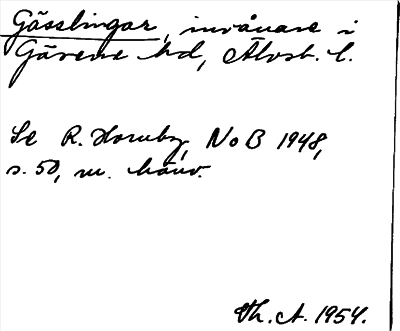 Gässlingar, invånare i
Gäsene hd, Älvsb. l.
Se R. Hornby, NoB 1948,
s. 50, m. hänv.
Th. A. 1954.